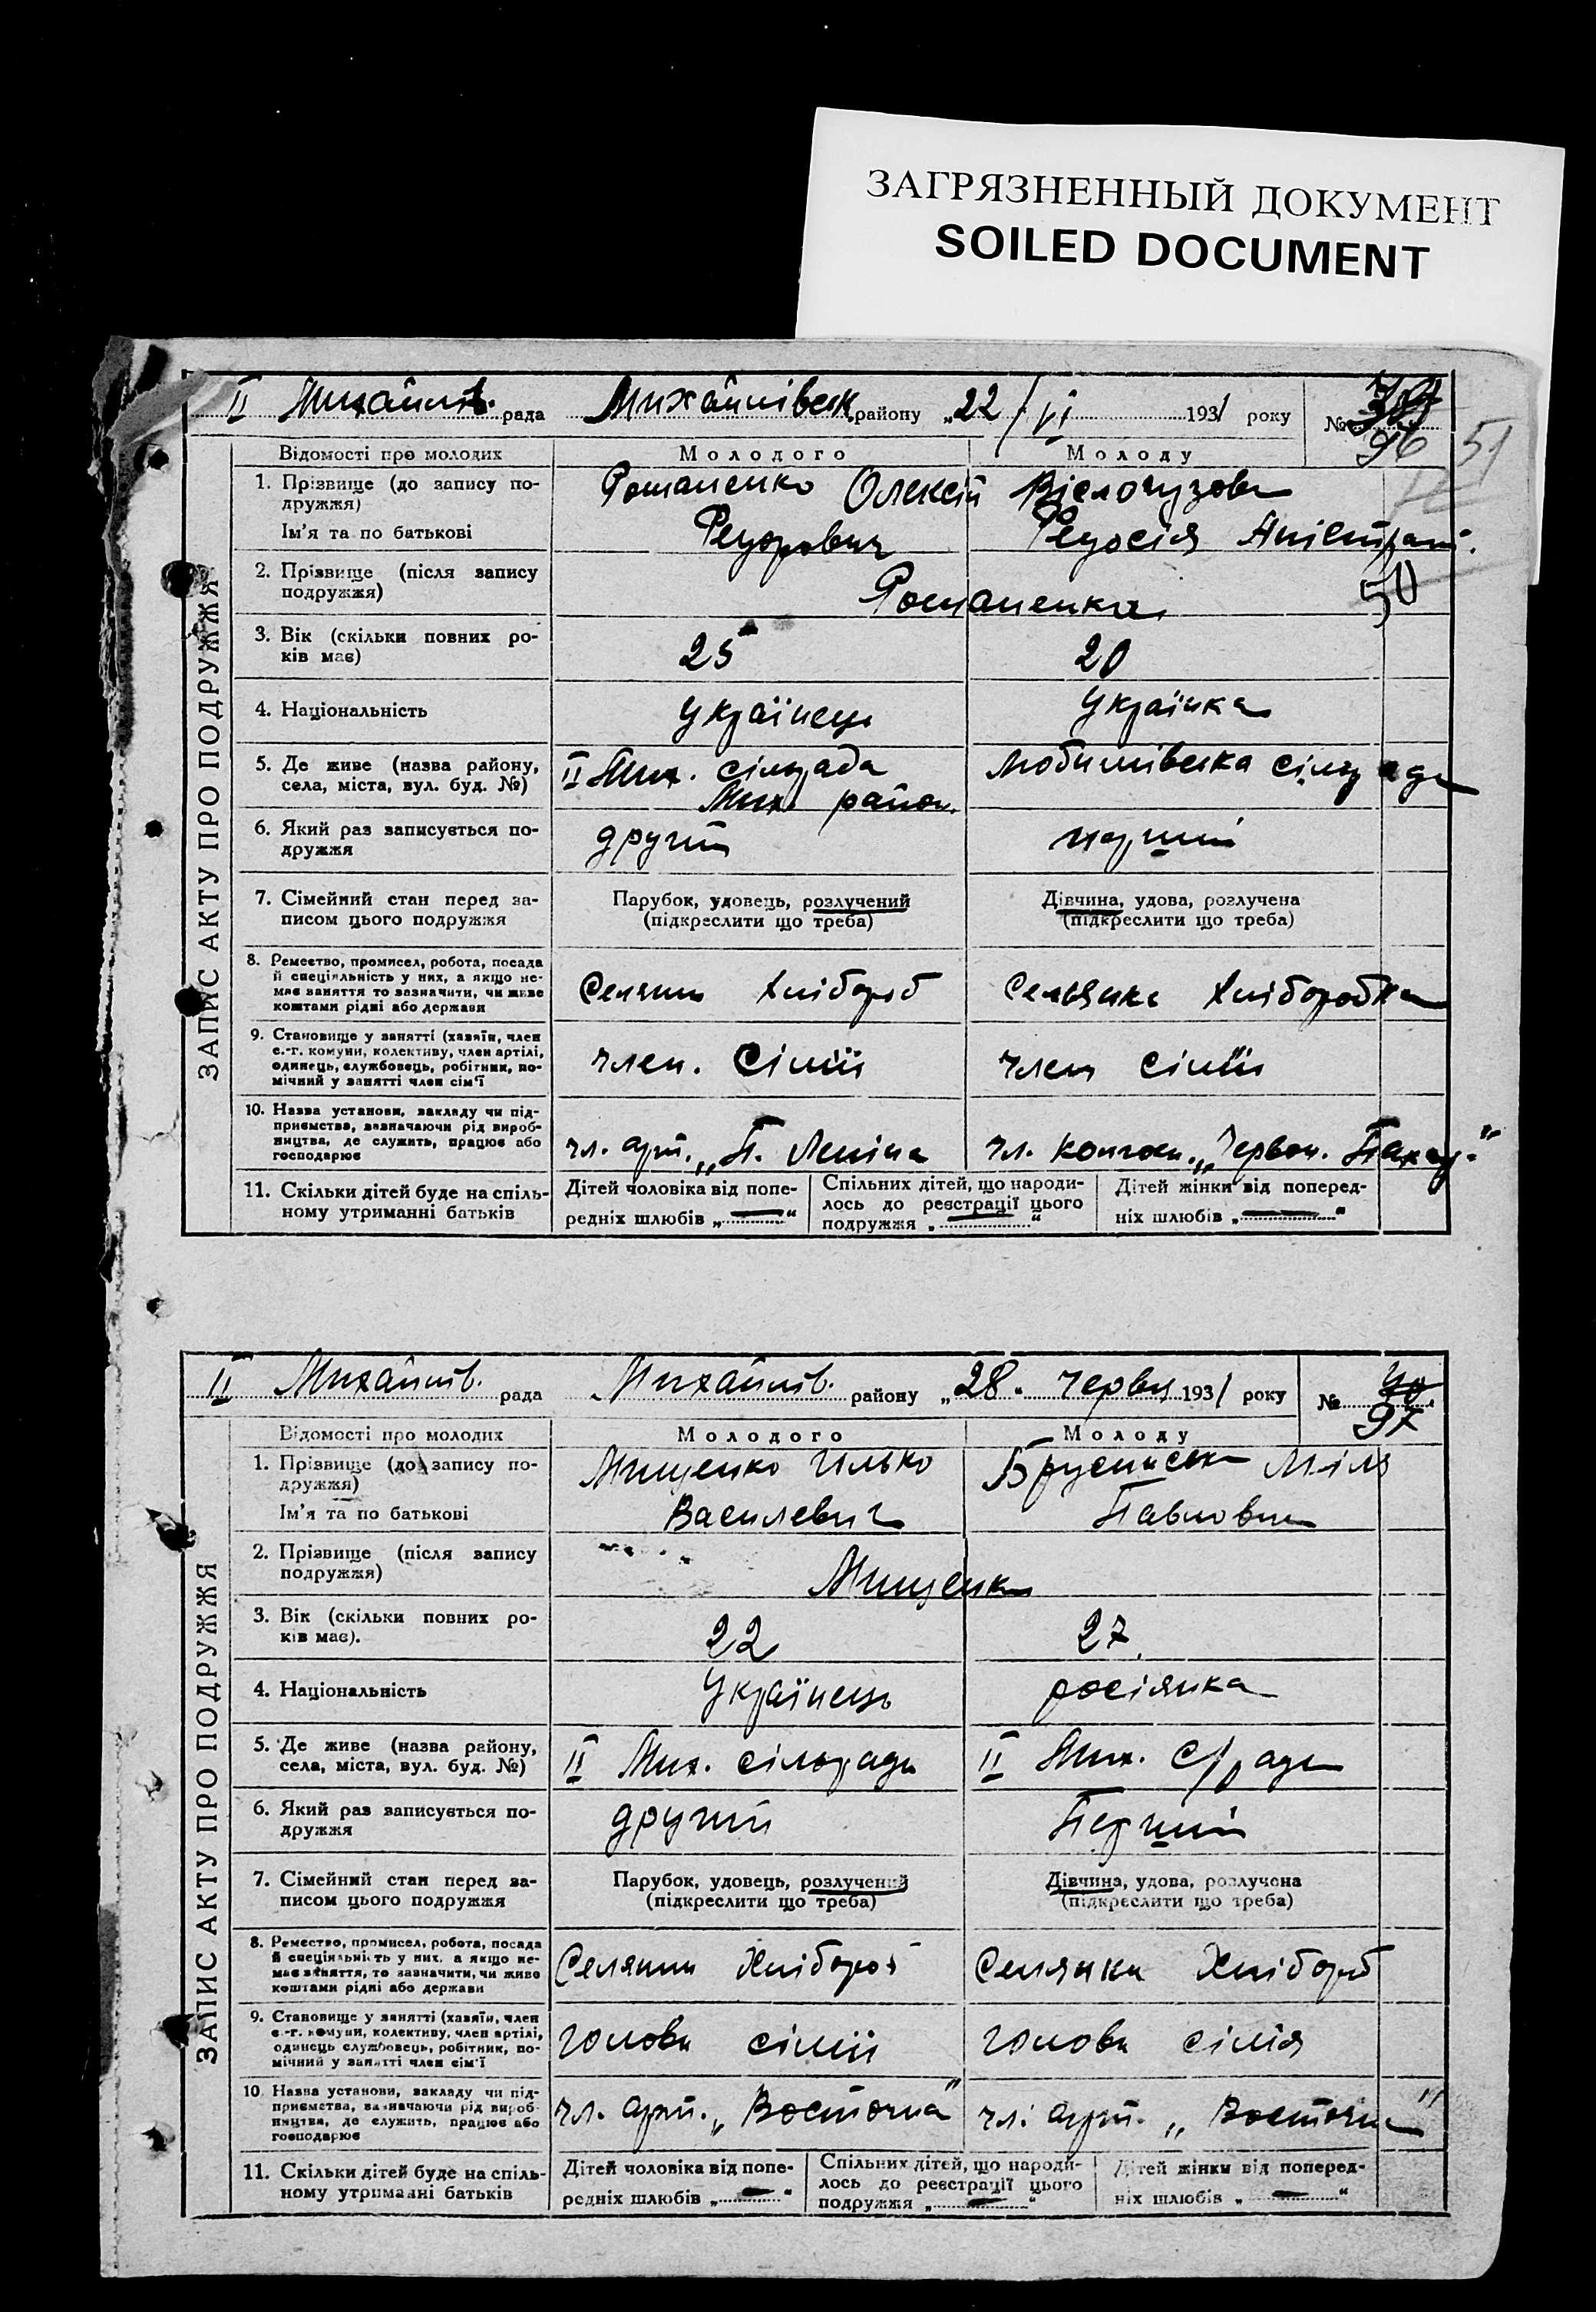 ЗАГРЯЗНЕННЫЙ ДОКУМЕНТ
SOILED DOCUMENT
ЗАПИС АКТУ ПРО ПОДРУЖЖЯ
II Михайлів. рада Михайлівськ району „22/VI 1931 року №
96
51
Відомості про молодих Молодого Молоду
1. Прізвище (до запису по-
дружжя)
Ім'я та по батькові
Романенко Олексій
Федорович
Федосія
2. Прізвище (після запису
подружжя)
Романенки
50
3. Вік (скільки повних ро-
ків має)
25 20
4. Національність
Українець Українка
5. Де живе (назва району,
села, міста, вул. буд. №)
II Мих. сільрада
Мих. район.
Любимівська сільрада
6. Який раз записується по-
дружжя
другий перший
7. Сімейний стан перед за-
писом цього подружжя
Парубок, удовець, розлучений
(підкреслити що треба)
Дівчина, удова, розлучена
(підкреслити що треба)
8. Ремество, промисел, робота, посада
й спеціяльність у них, а якщо не-
має заняття то зазначити, чи живе
коштами рідні або держави
Селянин Хлібороб Селянка Хлібороб
9. Становище у занятті (хазяїн, член
с.-г. комуни, колективу, член артілі,
одинець, службовець, робітник, по-
мічний у занятті член сім'ї
член. Сімії член Сімії
10. Назва установи, закладу чи під-
приємства, зазначаючи рід вироб-
ництва, де служить, працює або
господарює
чл. арт. „П. Леніна чл. колгосп. „Червон. Пахар"
11. Скільки дітей буде на спіль-
ному утриманні батьків
Дітей чоловіка від попе-
редніх шлюбів „—“
Спільних дітей, що народи-
лось до реєстрації цього
подружжя „—“
Дітей жінки від поперед-
ніх шлюбів „—“
ЗАПИС АКТУ ПРО ПОДРУЖЖЯ
II Михайлів. рада Михайлів. району „28. червн 1931 року № 40
97
Відомості про молодих Молодого Молоду
1. Прізвище (до запису по-
дружжя)
Ім'я та по батькові
Мищенко Илько
Василевич
Павловна
2. Прізвище (після запису
подружжя)
Мищенки
3. Вік (скільки повних ро-
ків має).
22 27
4. Національність
Українець росіянка
5. Де живе (назва району,
села, міста, вул. буд. №)
II Мих. сільради II Мих. С/ради
6. Який раз записується по-
дружжя
другий Перший
7. Сімейний стан перед за-
писом цього подружжя
Парубок, удовець, розлучений
(підкреслити що треба)
Дівчина, удова, розлучена
(підкреслити що треба)
8. Ремество, промисел, робота, посада
й спеціяльність у них, а якщо не-
має заняття, то зазначити, чи живе
коштами рідні або держави
Селянин Хлібороб Селянка Хлібороб
9. Становище у занятті (хазяїн, член
с.-г. комуни, колективу, член артілі,
одинець службовець, робітник, по-
мічний у занятті член сім'ї
голова сімії голова сімія
10. Назва установи, закладу чи під-
приємства, зазначаючи рід вироб-
ництва, де служить, працює або
господарює
чл. арт. „Восточна" чл. арт. „Восточна"
11. Скільки дітей буде на спіль-
ному утриманні батьків
Дітей чоловіка від попе-
редніх шлюбів „—“
Спільних дітей, що народи-
лось до реєстрації цього
подружжя „—“
Дітей жінки від поперед-
ніх шлюбів „—“